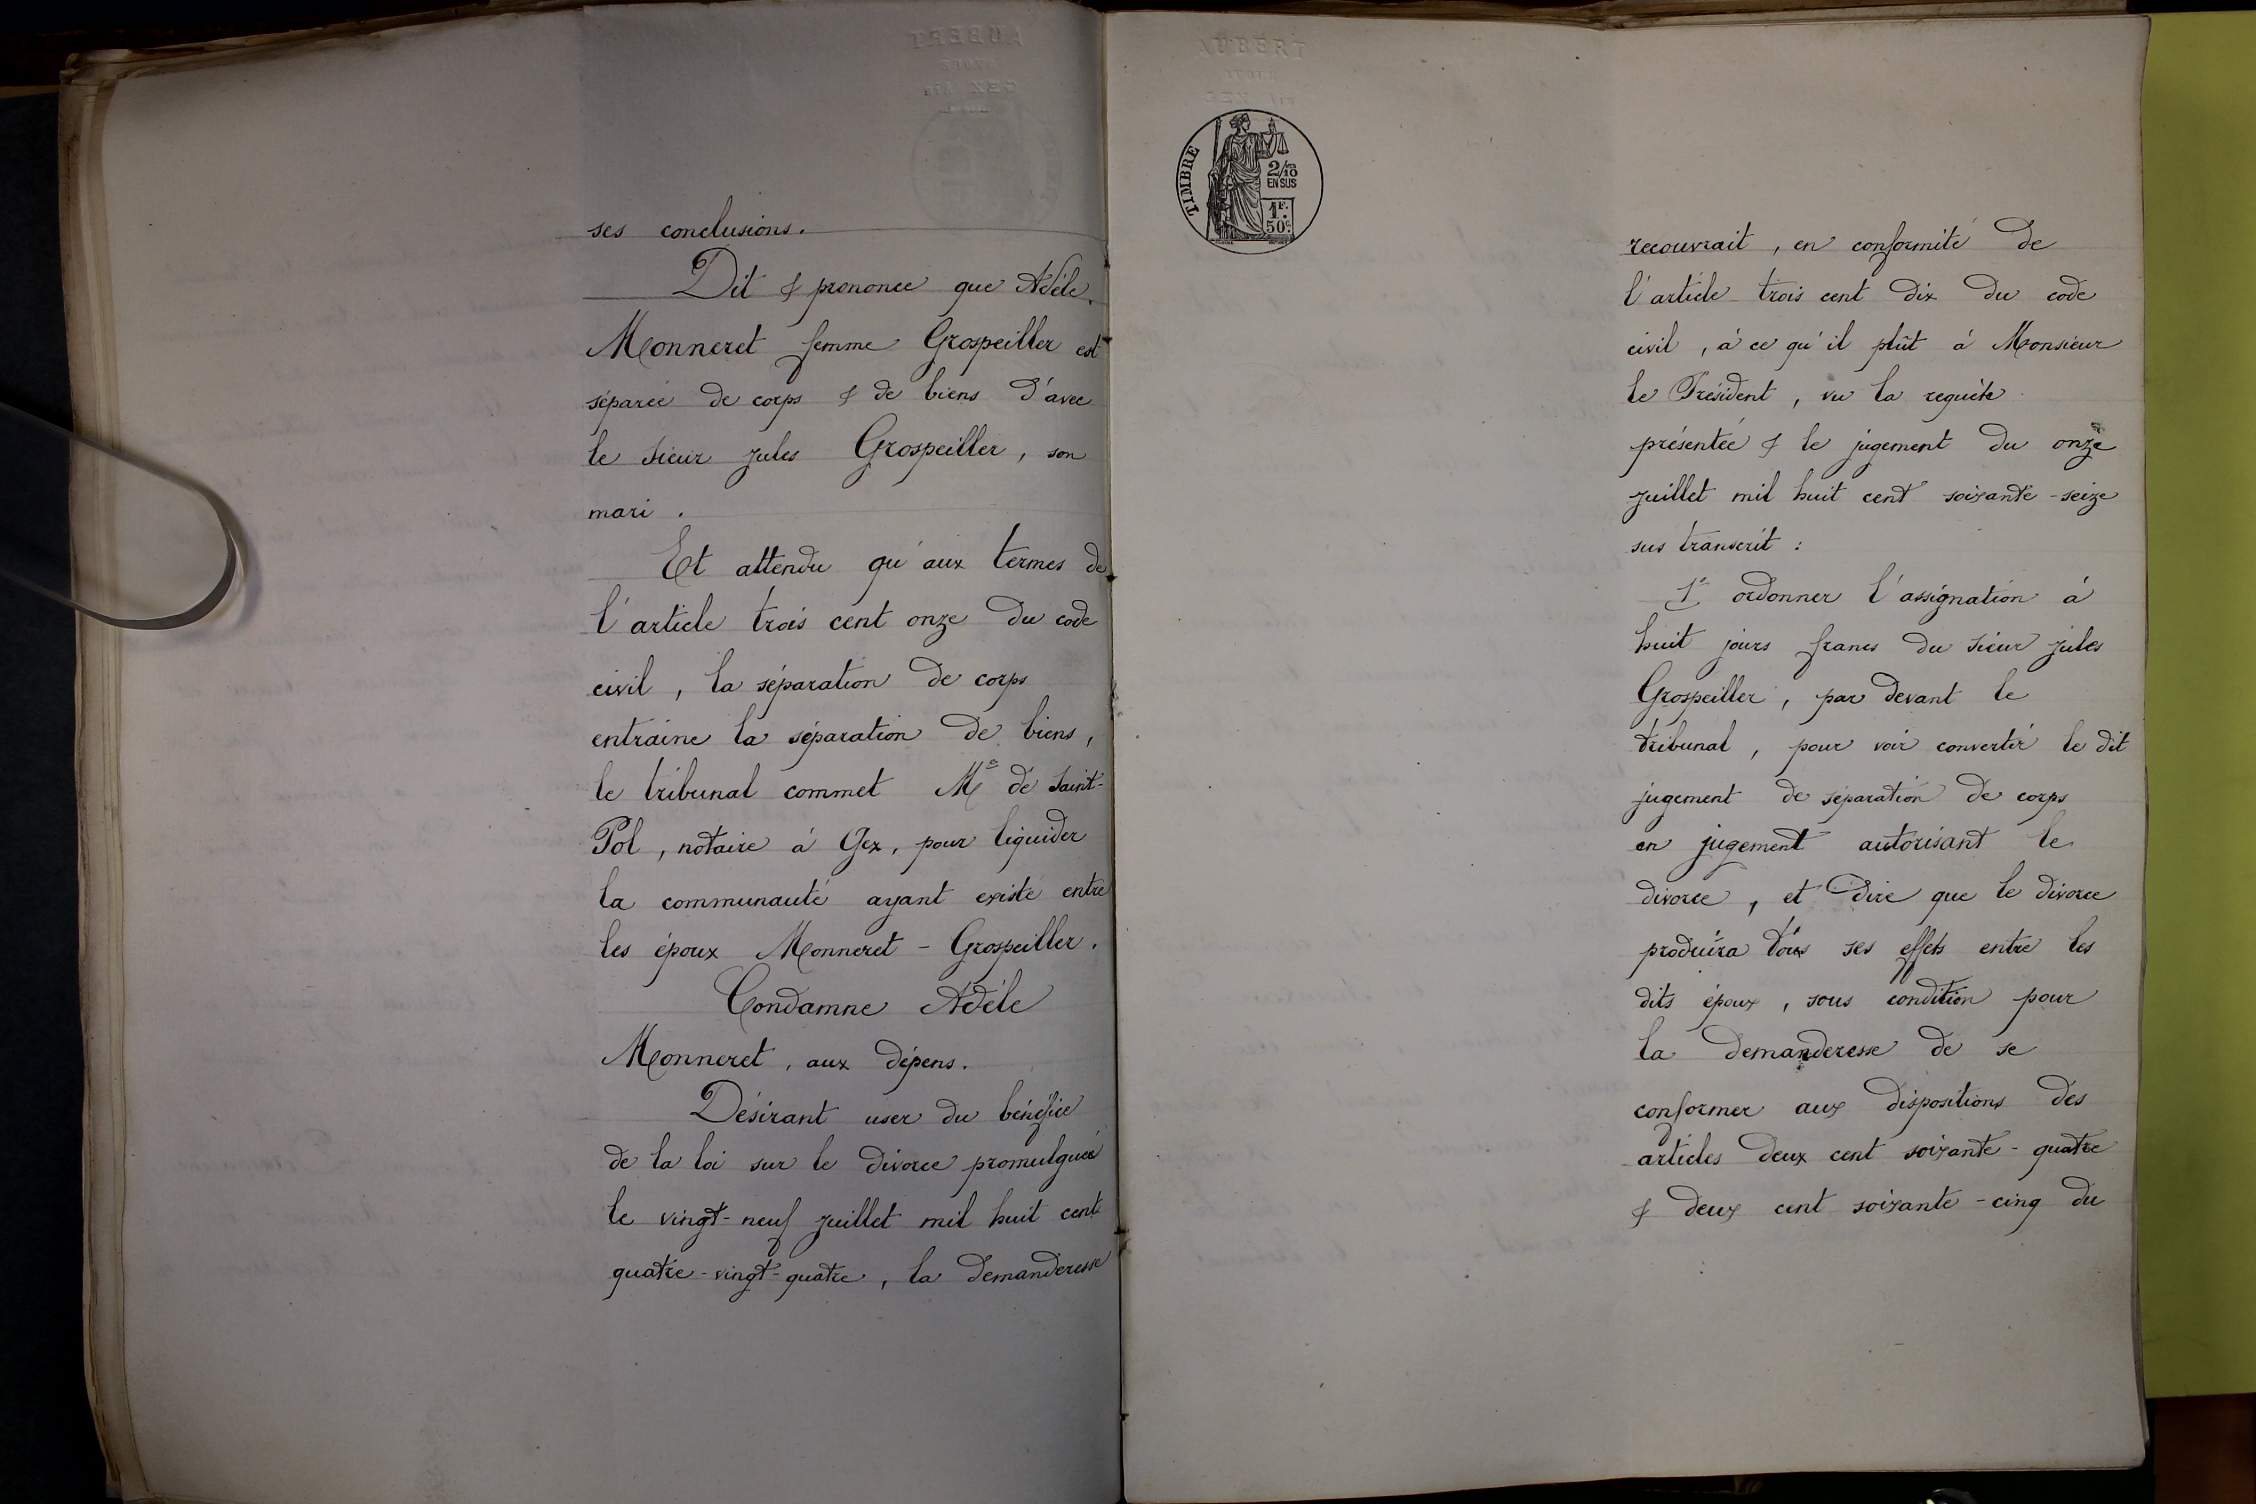 ses conclusions.
Dit & prononce que Adèle
Monneret femme Grospeiller est
séparée de corps & de biens d'avec
le sieur jules Grospeiller, son
mari.
Et attendu qu'aux termes de
l'article trois cent onze du code
civil, la séparation de corps
entraine la séparation de biens,
le tribunal commet Me de Saint-
Pol, notaire à Gex, pour liquider
la communauté ayant existé entre
les époux Monneret - Grospeiller.
Condamne Adèle
Monneret, aux dépens.
Désirant user du bénéfice
de la loi sur le divorce promulguée
le vingt-neuf juillet mil huit cent
quatre-vingt-quatre, la demanderesse
AUBERT
GEX
TIMBRE
2/10
EN SUS
1F.
50c
recouvrait, en conformité de
l'article trois cent dix du code
civil, à ce qu'il plût à Monsieur
le Président, vu la requête
présentée & le jugement du onze
juillet mil huit cent soixante-seize
sus transcrit :
1° ordonner l'assignation à
huit jours francs du sieur jules
Grospeiller, par devant le
tribunal, pour voir convertir le dit
jugement de séparation de corps
en jugement autorisant le
divorce, et dire que le divorce
produira tous ses effets entre les
dits époux, sous condition pour
la demanderesse de se
conformer aux dispositions des
articles deux cent soixante-quatre
& deux cent soixante-cinq du